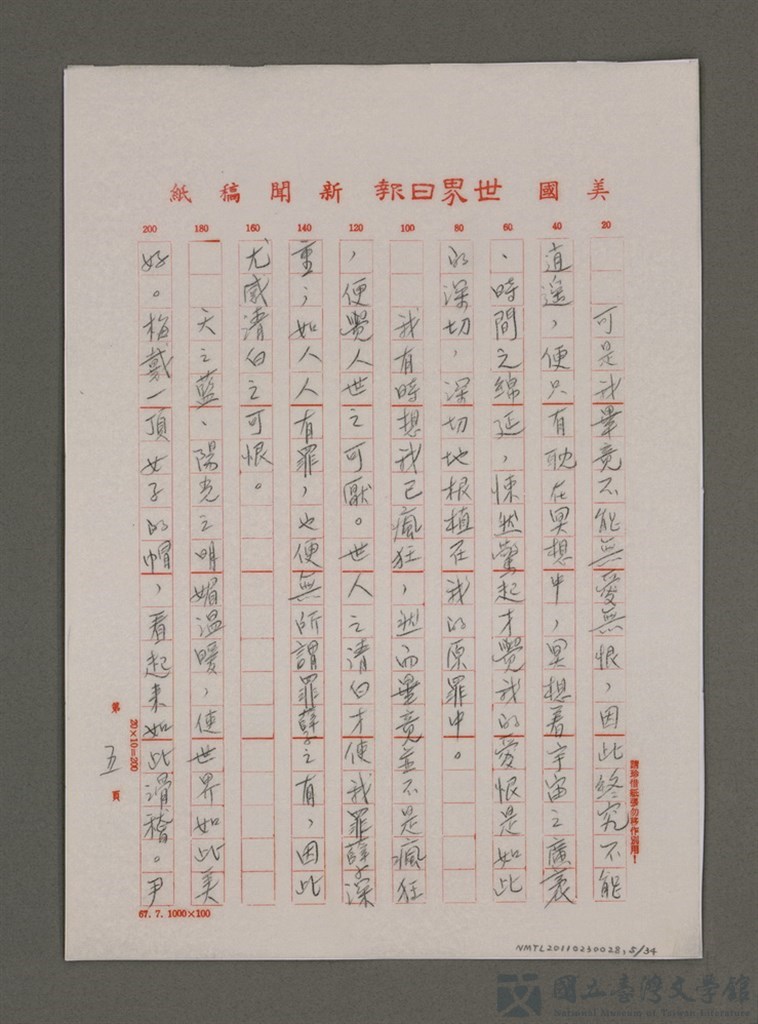 美國世界日報新聞稿紙
20
40
60
80
100
120
140
160
180
200
可是我畢竟不能無愛無恨，因此終究不能
逍遙，便只有耽在冥想中，冥想着宇宙之廣袤
、時間之綿延，悚然驚起才覺我的愛恨是如此
的深切，深切地根植在我的原罪中。
我有時想我已瘋狂，然而畢竟並不是瘋狂
，便覺人世之可厭。世人之清白才使我罪孽深
重；如人人有罪，也便無所謂罪孽之有，因此
尤感清白之可恨。
天之藍、陽光之明媚溫暖，使世界如此美
好。梅戴一頂女子的帽，看起來如此滑稽。尹
請珍惜紙張勿移作別用！
20×10=200
第五頁
67.7.1000×100
NMTL20110230028,5/34
國立臺灣文學館
National Museum of Taiwan Literature